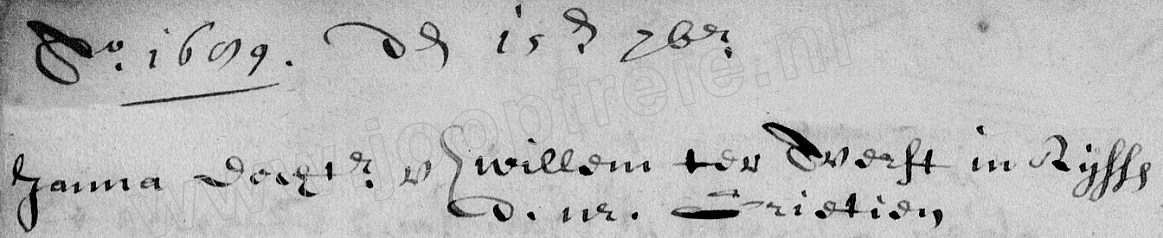 Ao. 1689. dē 15 dē 7bēr.
Janna dochtr. v willem ter Werft in Rijss
D. mr. Grietien
www.joopfreie.nl